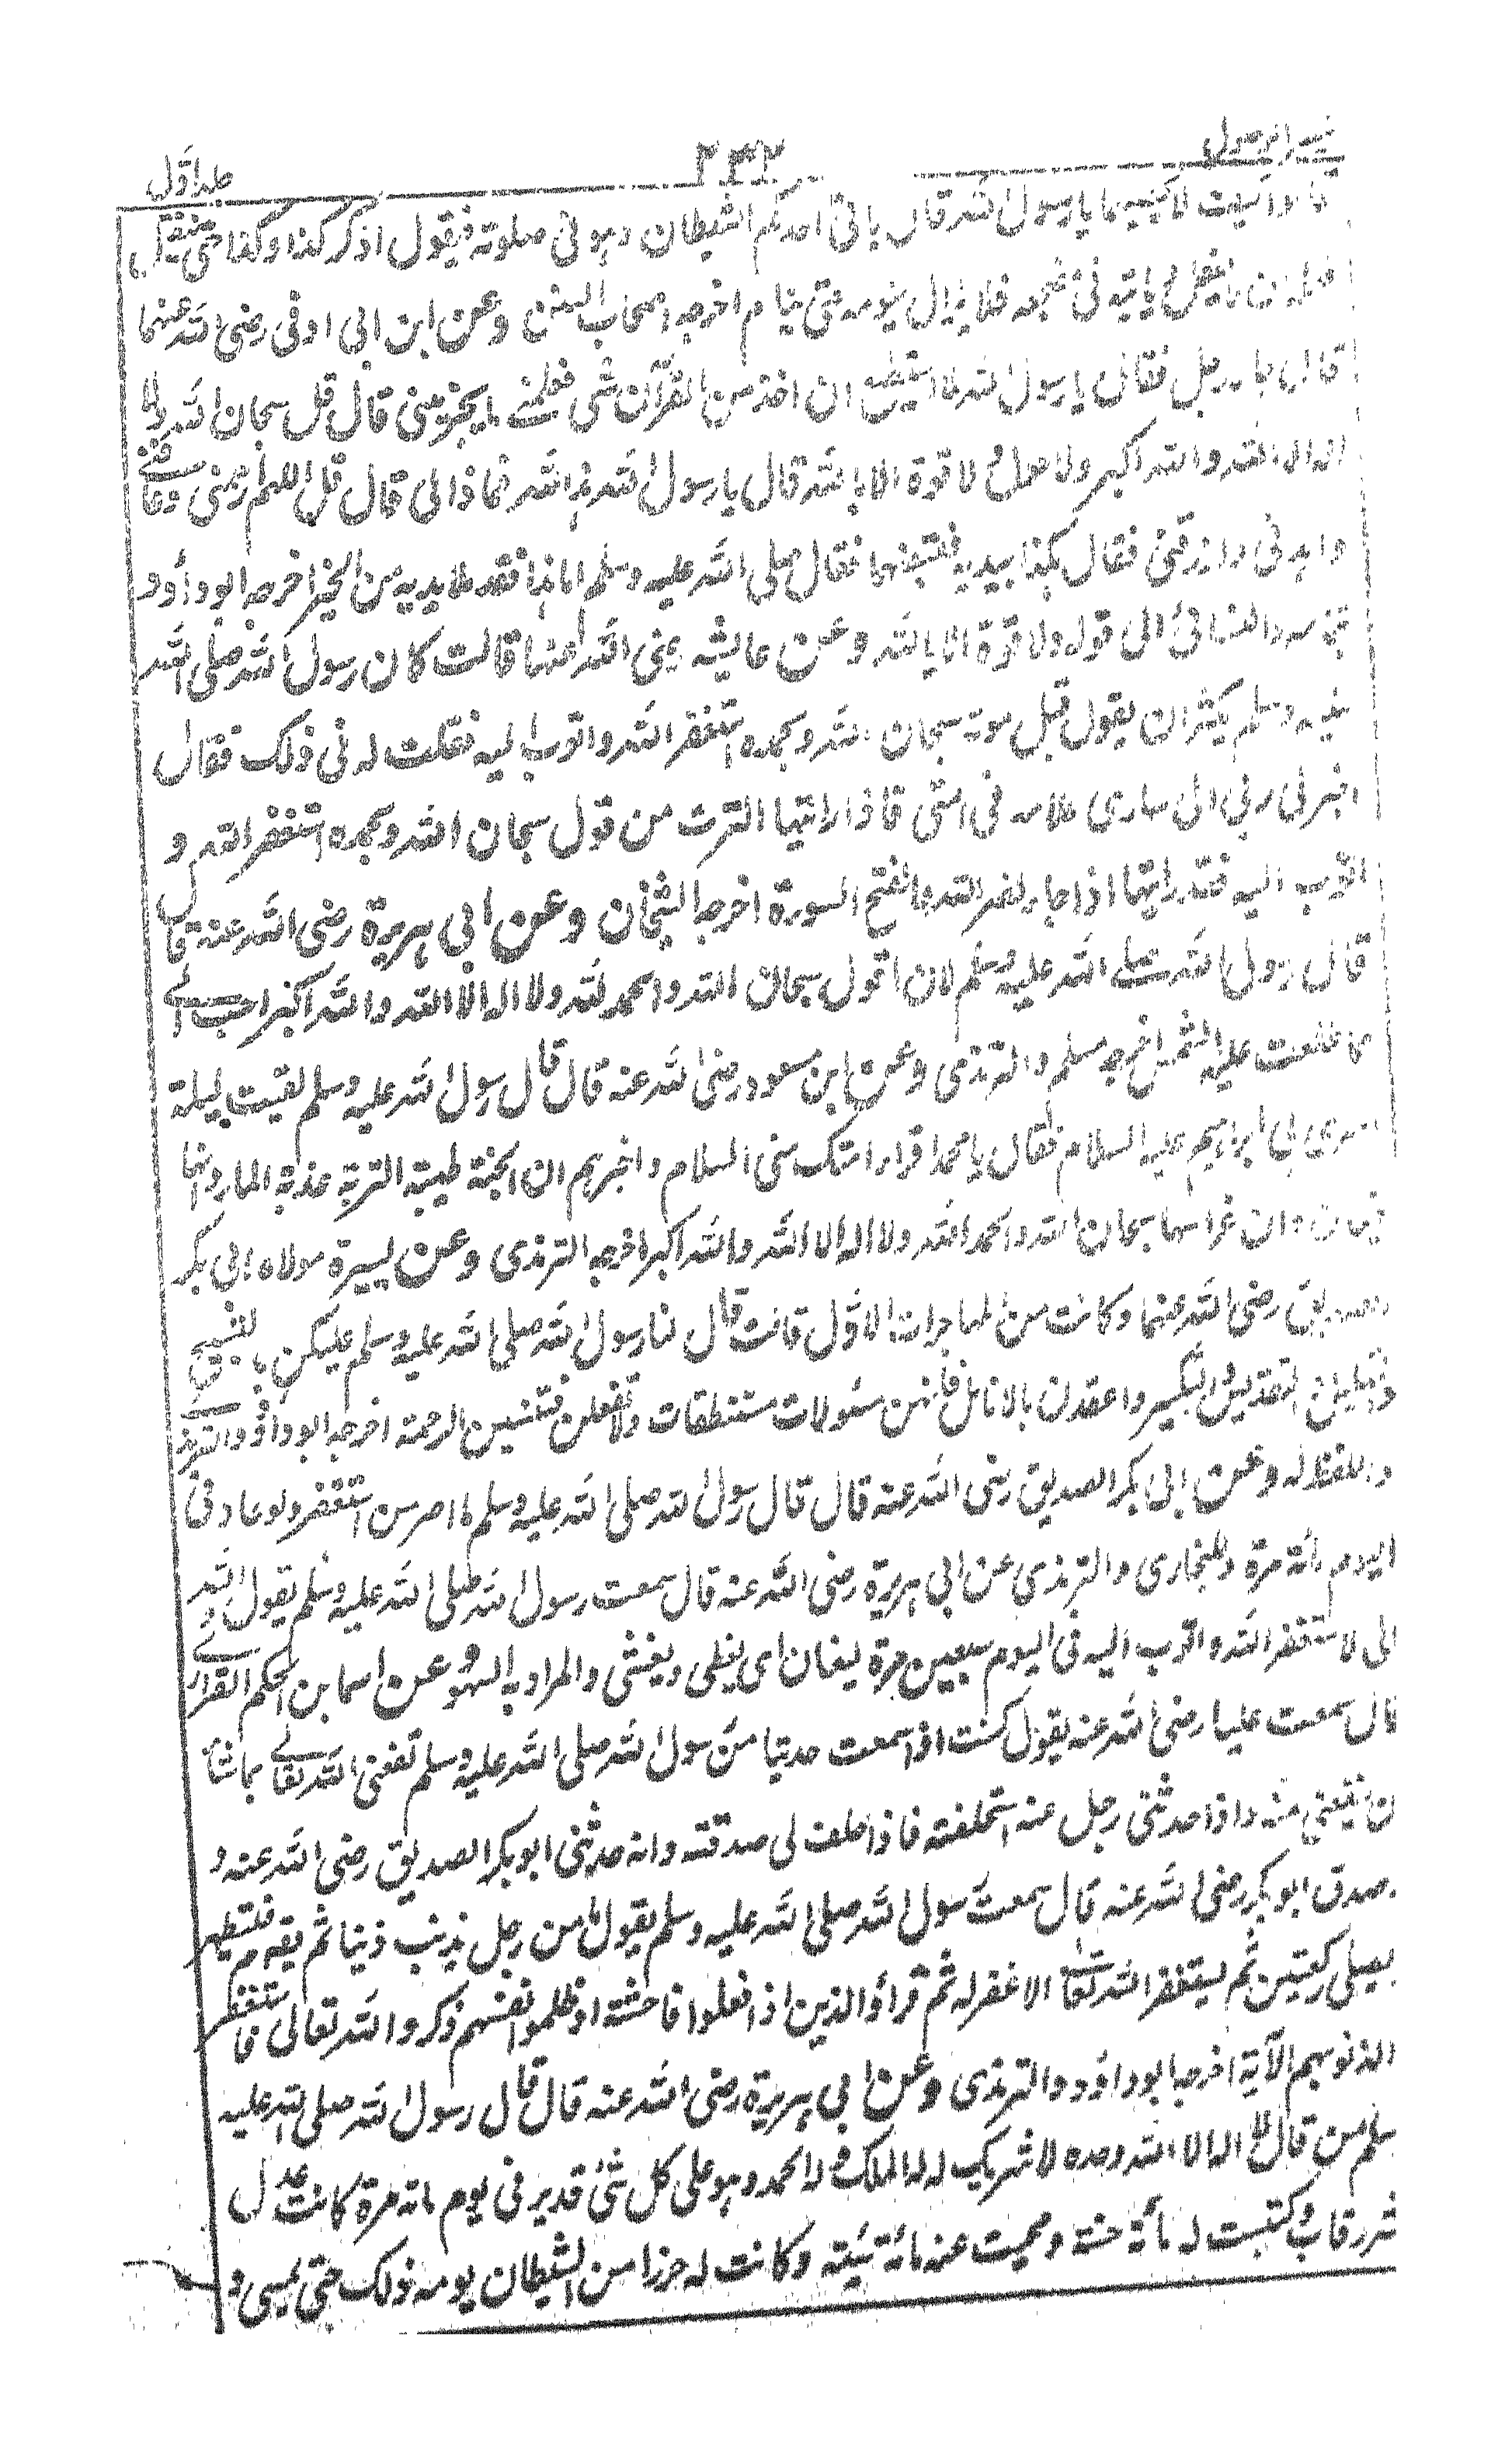 تيسير الوصول ٢٣٢ جلد اول
قالوا وكيف لا نحصيها يا رسول الله قال ياتي احدكم الشيطان وهو في صلوته فيقول اذكر كذا وكذا حتى ينفتل
فلعله ان لا يفعل وياتيه في مضجعه فلا يزال ينومه حتى ينام اخرجه اصحاب السنن وعن ابن ابي اوفى رضى الله عنهما
قال جاء رجل فقال يا رسول الله لا استطيع ان اخذ من القرآن شئ فعلمني ما يجزيني قال قل سبحان الله ولا
اله الا الله والله اكبر ولا حول ولا قوة الا بالله قال يا رسول الله هذا لله فما ذا لي قال قل اللهم ارحمني وعافني
واهدني وارزقني فقال هكذا بيديه فقبضهما فقال صلى الله عليه وسلم اما هذا فقد ملا يديه من الخير اخرجه ابو داؤد
والنسائي الى قوله ولا قوة الا بالله وعن عايشه رضى الله عنها قالت كان رسول الله صلى الله
عليه وسلم يكثر ان يقول قبل موته سبحان الله وبحمده استغفر الله واتوب اليه فقلت له في ذلك فقال
اخبرني ربي اني سارى علامة في امتي فاذا رايتها اكثرت من قول سبحان الله وبحمده استغفر الله و
اتوب اليه فقد رايتها اذا جاء نصر الله والفتح السورة اخرجه الشيخان وعن ابي هريرة رضى الله عنه قال
قال رسول الله صلى الله عليه وسلم لان اقول سبحان الله والحمد لله ولا اله الا الله والله اكبر احب الي
مما طلعت عليه الشمس اخرجه مسلم والترمذي وعن ابن مسعود رضى الله عنه قال قال رسول الله عليه وسلم لقيت ليلة
اسرى بي ابراهيم عليه السلام فقال يا محمد اقرا امتك مني السلام واخبرهم ان الجنة طيبة التربة عذبة الماء وانها
قيعان وان غراسها سبحان الله والحمد لله ولا اله الا الله والله اكبر اخرجه الترمذي وعن يسيرة مولاة ابي بكر
الصديق رضى الله عنهما وكانت من المهاجرات الاول قالت قال لنا رسول الله صلى الله عليه وسلم عليكن بالتسبيح
والتهليل والتقديس والتكبير واعقدن بالانامل فانهن مسئولات مستنطقات ولا تغفلن فتنسين الرحمة اخرجه ابو داؤد والترمذي
واللفظ له وعن ابي بكر الصديق رضى الله عنه قال قال رسول الله صلى الله عليه وسلم ما اصر من استغفر ولو عاد في
اليوم مائة مرة وللبخاري والترمذي عن ابي هريرة رضى الله عنه قال سمعت رسول الله صلى الله عليه وسلم يقول والله
اني لاستغفر الله واتوب اليه في اليوم سبعين مرة ليغان اى يغطى ويغشى والمراد به السهو وعن اسما بن الحكم الفزاري
قال سمعت عليا رضى الله عنه يقول كنت اذا سمعت حديثا من رسول الله صلى الله عليه وسلم نفعني الله تعالى بما شاء
ان ينفعني منه واذا حدثني رجل عنه استحلفته فاذا حلف لي صدقته وانه حدثني ابو بكر الصديق رضى الله عنه و
صدق ابو بكر رضى الله عنه قال سمعت رسول الله صلى الله عليه وسلم يقول ما من رجل يذنب ذنبا ثم يقوم فيتطهر
يصلي ركعتين ثم يستغفر الله تعالى الا غفر له ثم قرا والذين اذا فعلوا فاحشة او ظلموا انفسهم ذكروا الله تعالى فاستغفر
الذنوبهم الآية اخرجه ابو داؤد والترمذي وعن ابي هريرة رضى الله عنه قال قال رسول الله صلى الله عليه
سلم من قال لا اله الا الله وحده لا شريك له له الملك وله الحمد وهو على كل شئ قدير في يوم مائة مرة كانت عدل
عشر رقاب وكتبت له مائة حسنة ومحيت عنه مائة سيئة وكانت له حرزا من الشيطان يومه ذلك حتى يمسى و